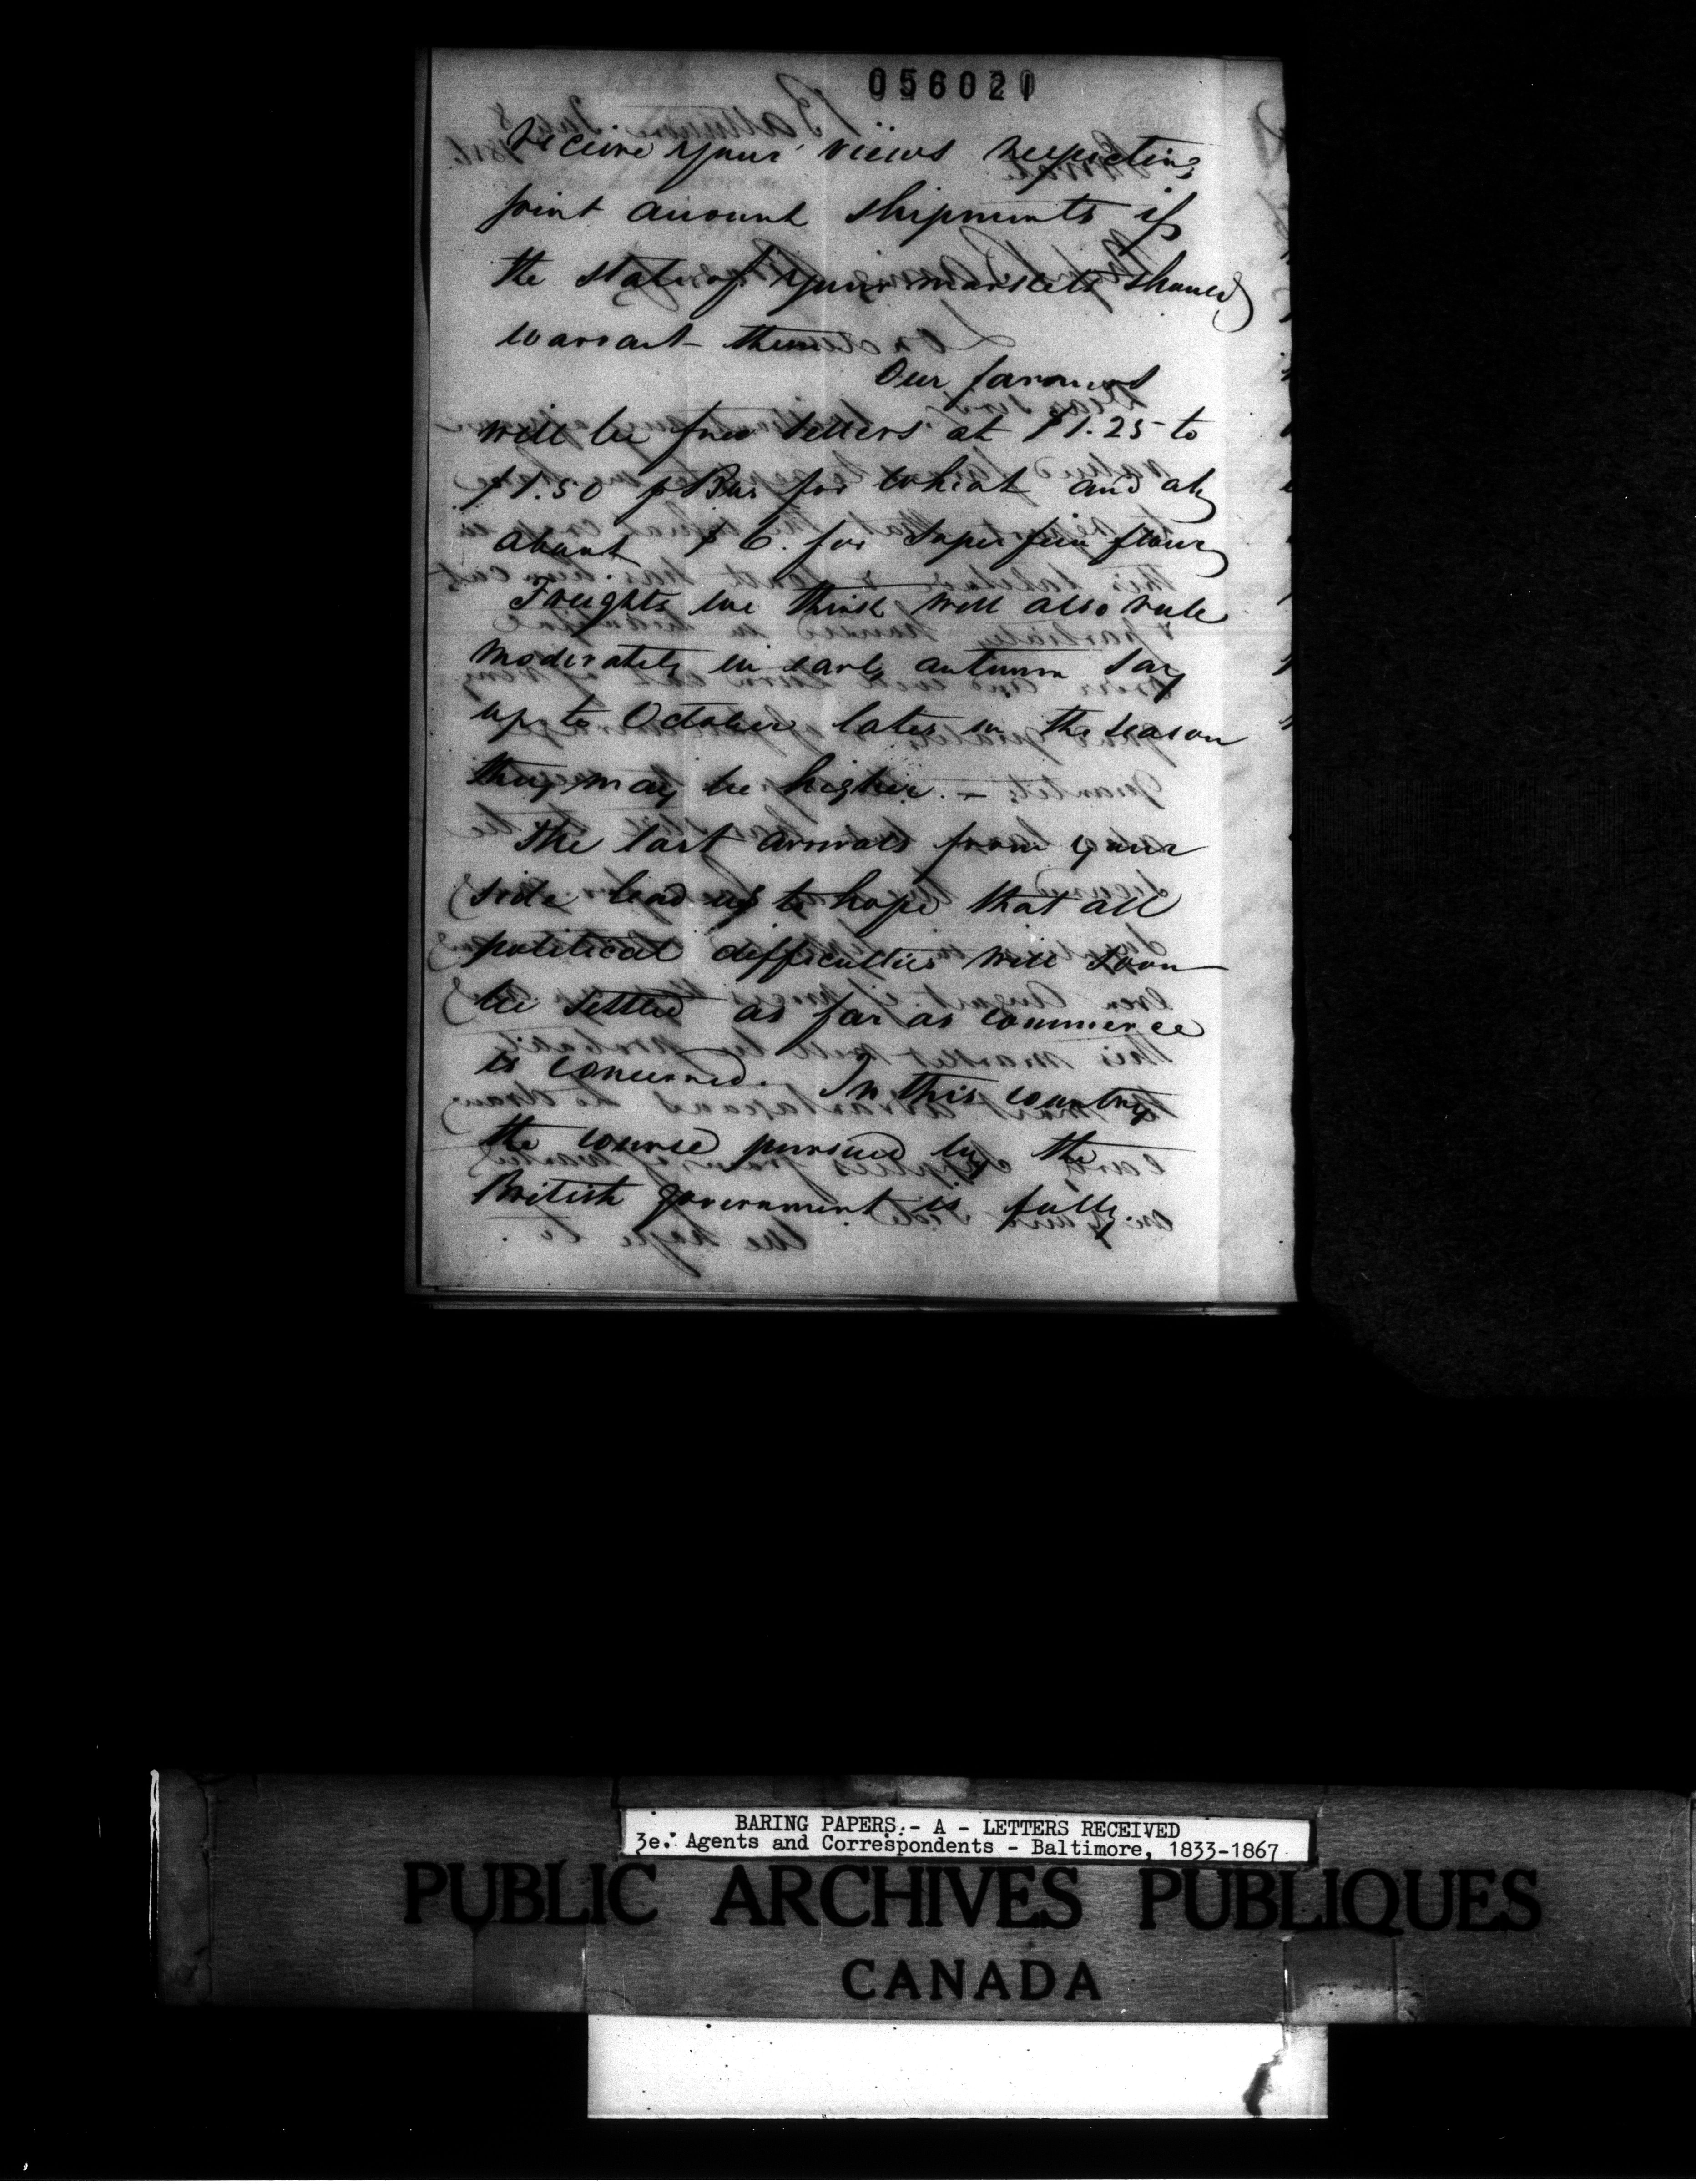 056021
receive your views respecting
joint account shipments if
the state of your markets should
warrant them
Our farmers
will be free sellers at $1.25 to
$1.50 p Bus for wheat and at
about $6. for Superfine flour
Freights we think will also rule
moderately in early autumn say
up to October later in the season
they may be higher. —
The last arrivals from your
side lead us to hope that all
political difficulties will soon
be settled as far as commerce
is concerned. In this country
the course pursued by the
British government is fully
BARING PAPERS.- A - LETTERS RECEIVED
3e. Agents and Correspondents - Baltimore, 1833-1867
PUBLIC ARCHIVES PUBLIQUES
CANADA